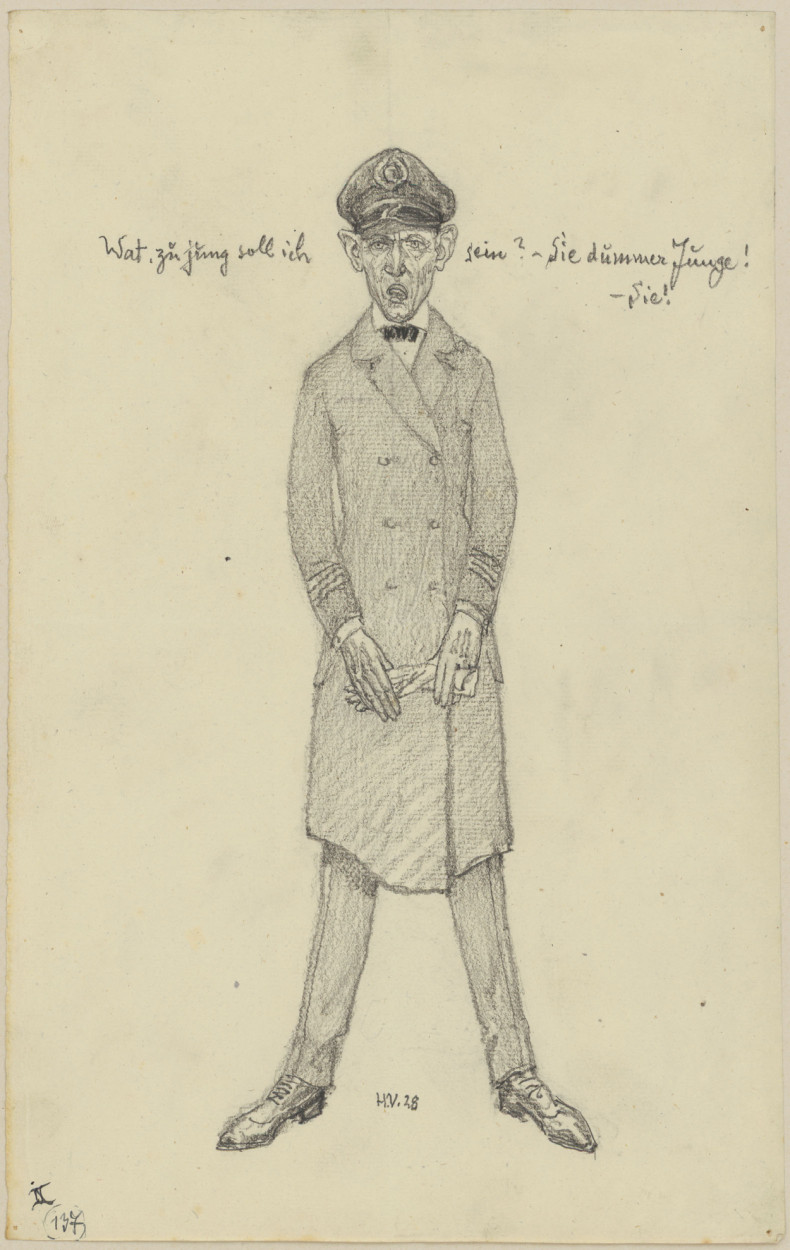 Wat, zu jung soll ich sein? - Sie dummer Junge!
- Sie!
H.V. 28
II
(137)